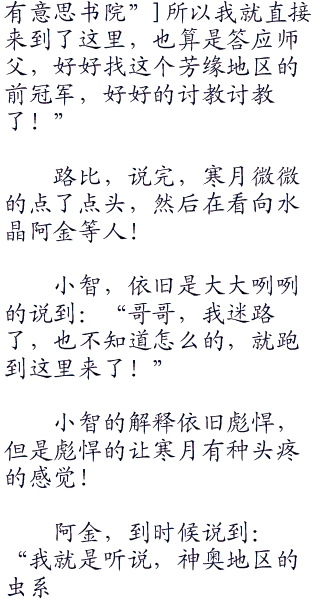 有意思书院”]所以我就直接
来到了这里，也算是答应师
父，好好找这个芳缘地区的
前冠军，好好的讨教讨教
了！”
路比，说完，寒月微微
的点了点头，然后在看向水
晶阿金等人！
小智，依旧是大大咧咧
的说到：“哥哥，我迷路
了，也不知道怎么的，就跑
到这里来了！”
小智的解释依旧彪悍，
但是彪悍的让寒月有种头疼
的感觉！
阿金，到时候说到：
“我就是听说，神奥地区的
虫系